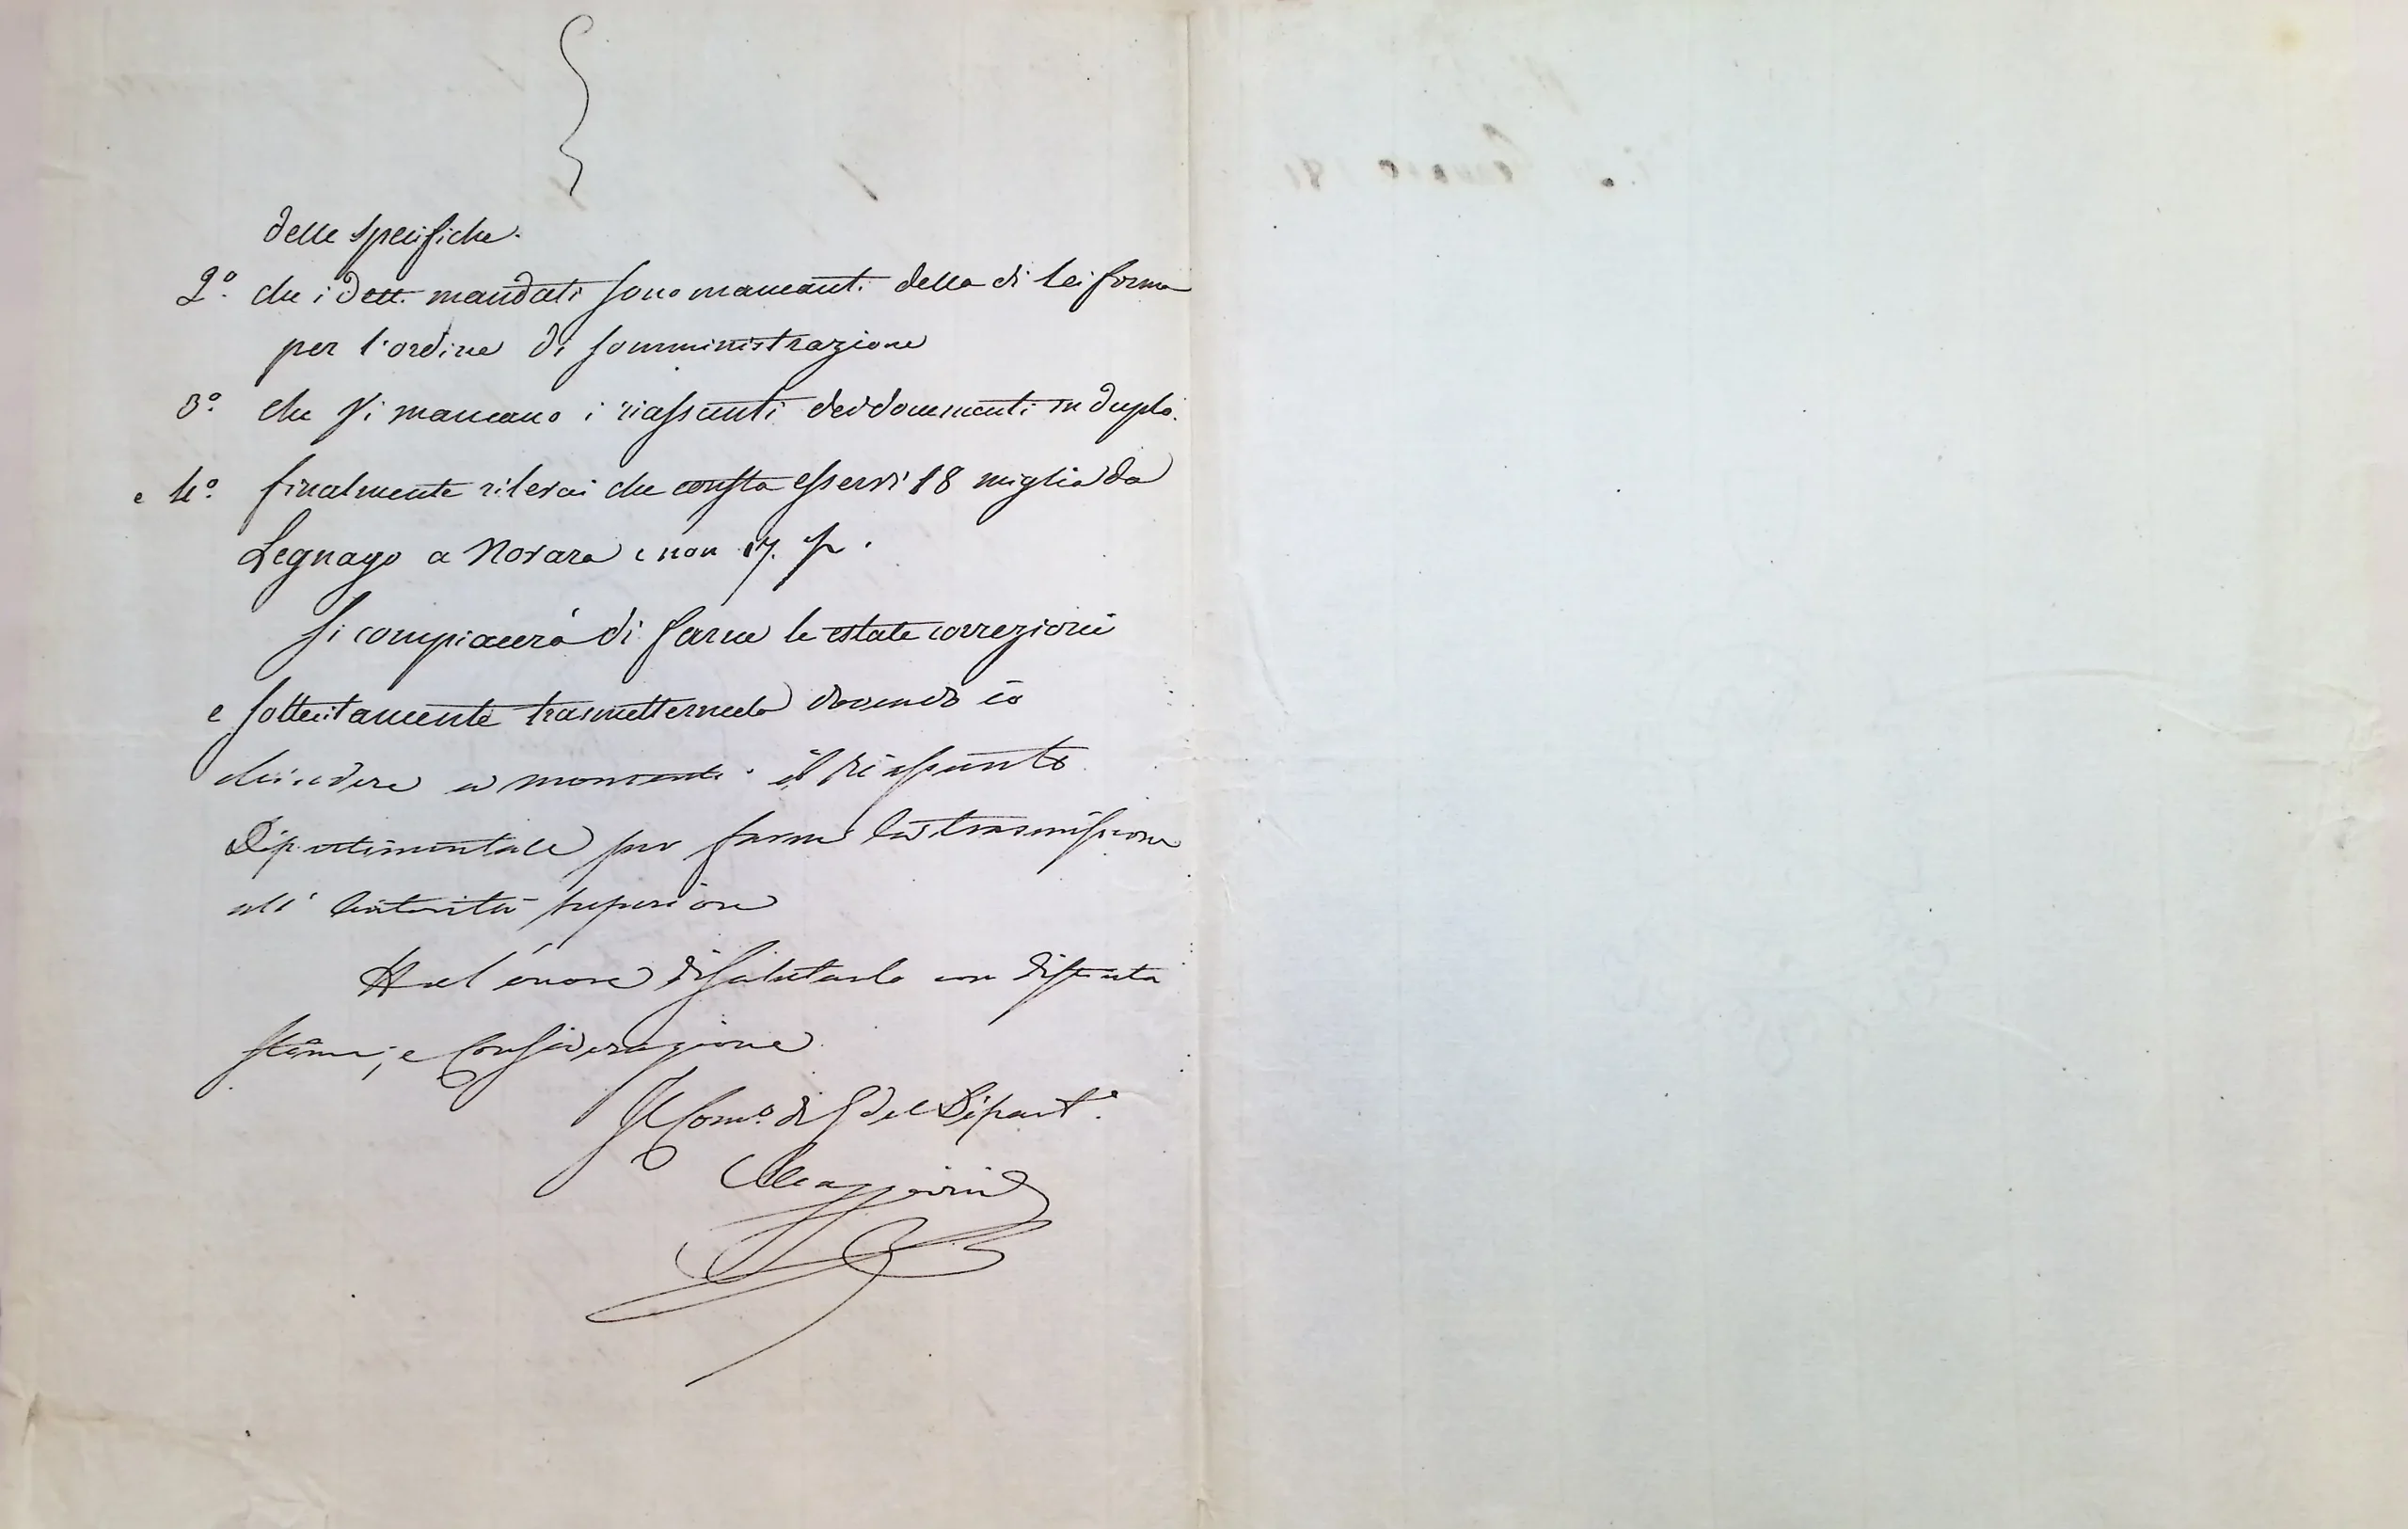 delle specifiche.
2.º che i dett. mandati sono mancanti della di lei forma
per l'ordine di somministrazione
3.º che vi mancano i riassunti dei documenti in duplo.
e 4.º finalmente rilevai che consta esservi 18 miglia da
Legnago a Novara e non 17.
Si compiacerà di farne le esatte correzioni
e sollecitamente trasmettermelo dovendo io
chiudere a momenti il riassunto
Dipartimentale per farne la trasmissione
all' autorità superiore
Ho l'onore di salutarlo con distinta
stima, e considerazione
Il Com.º di G del Dipart.º